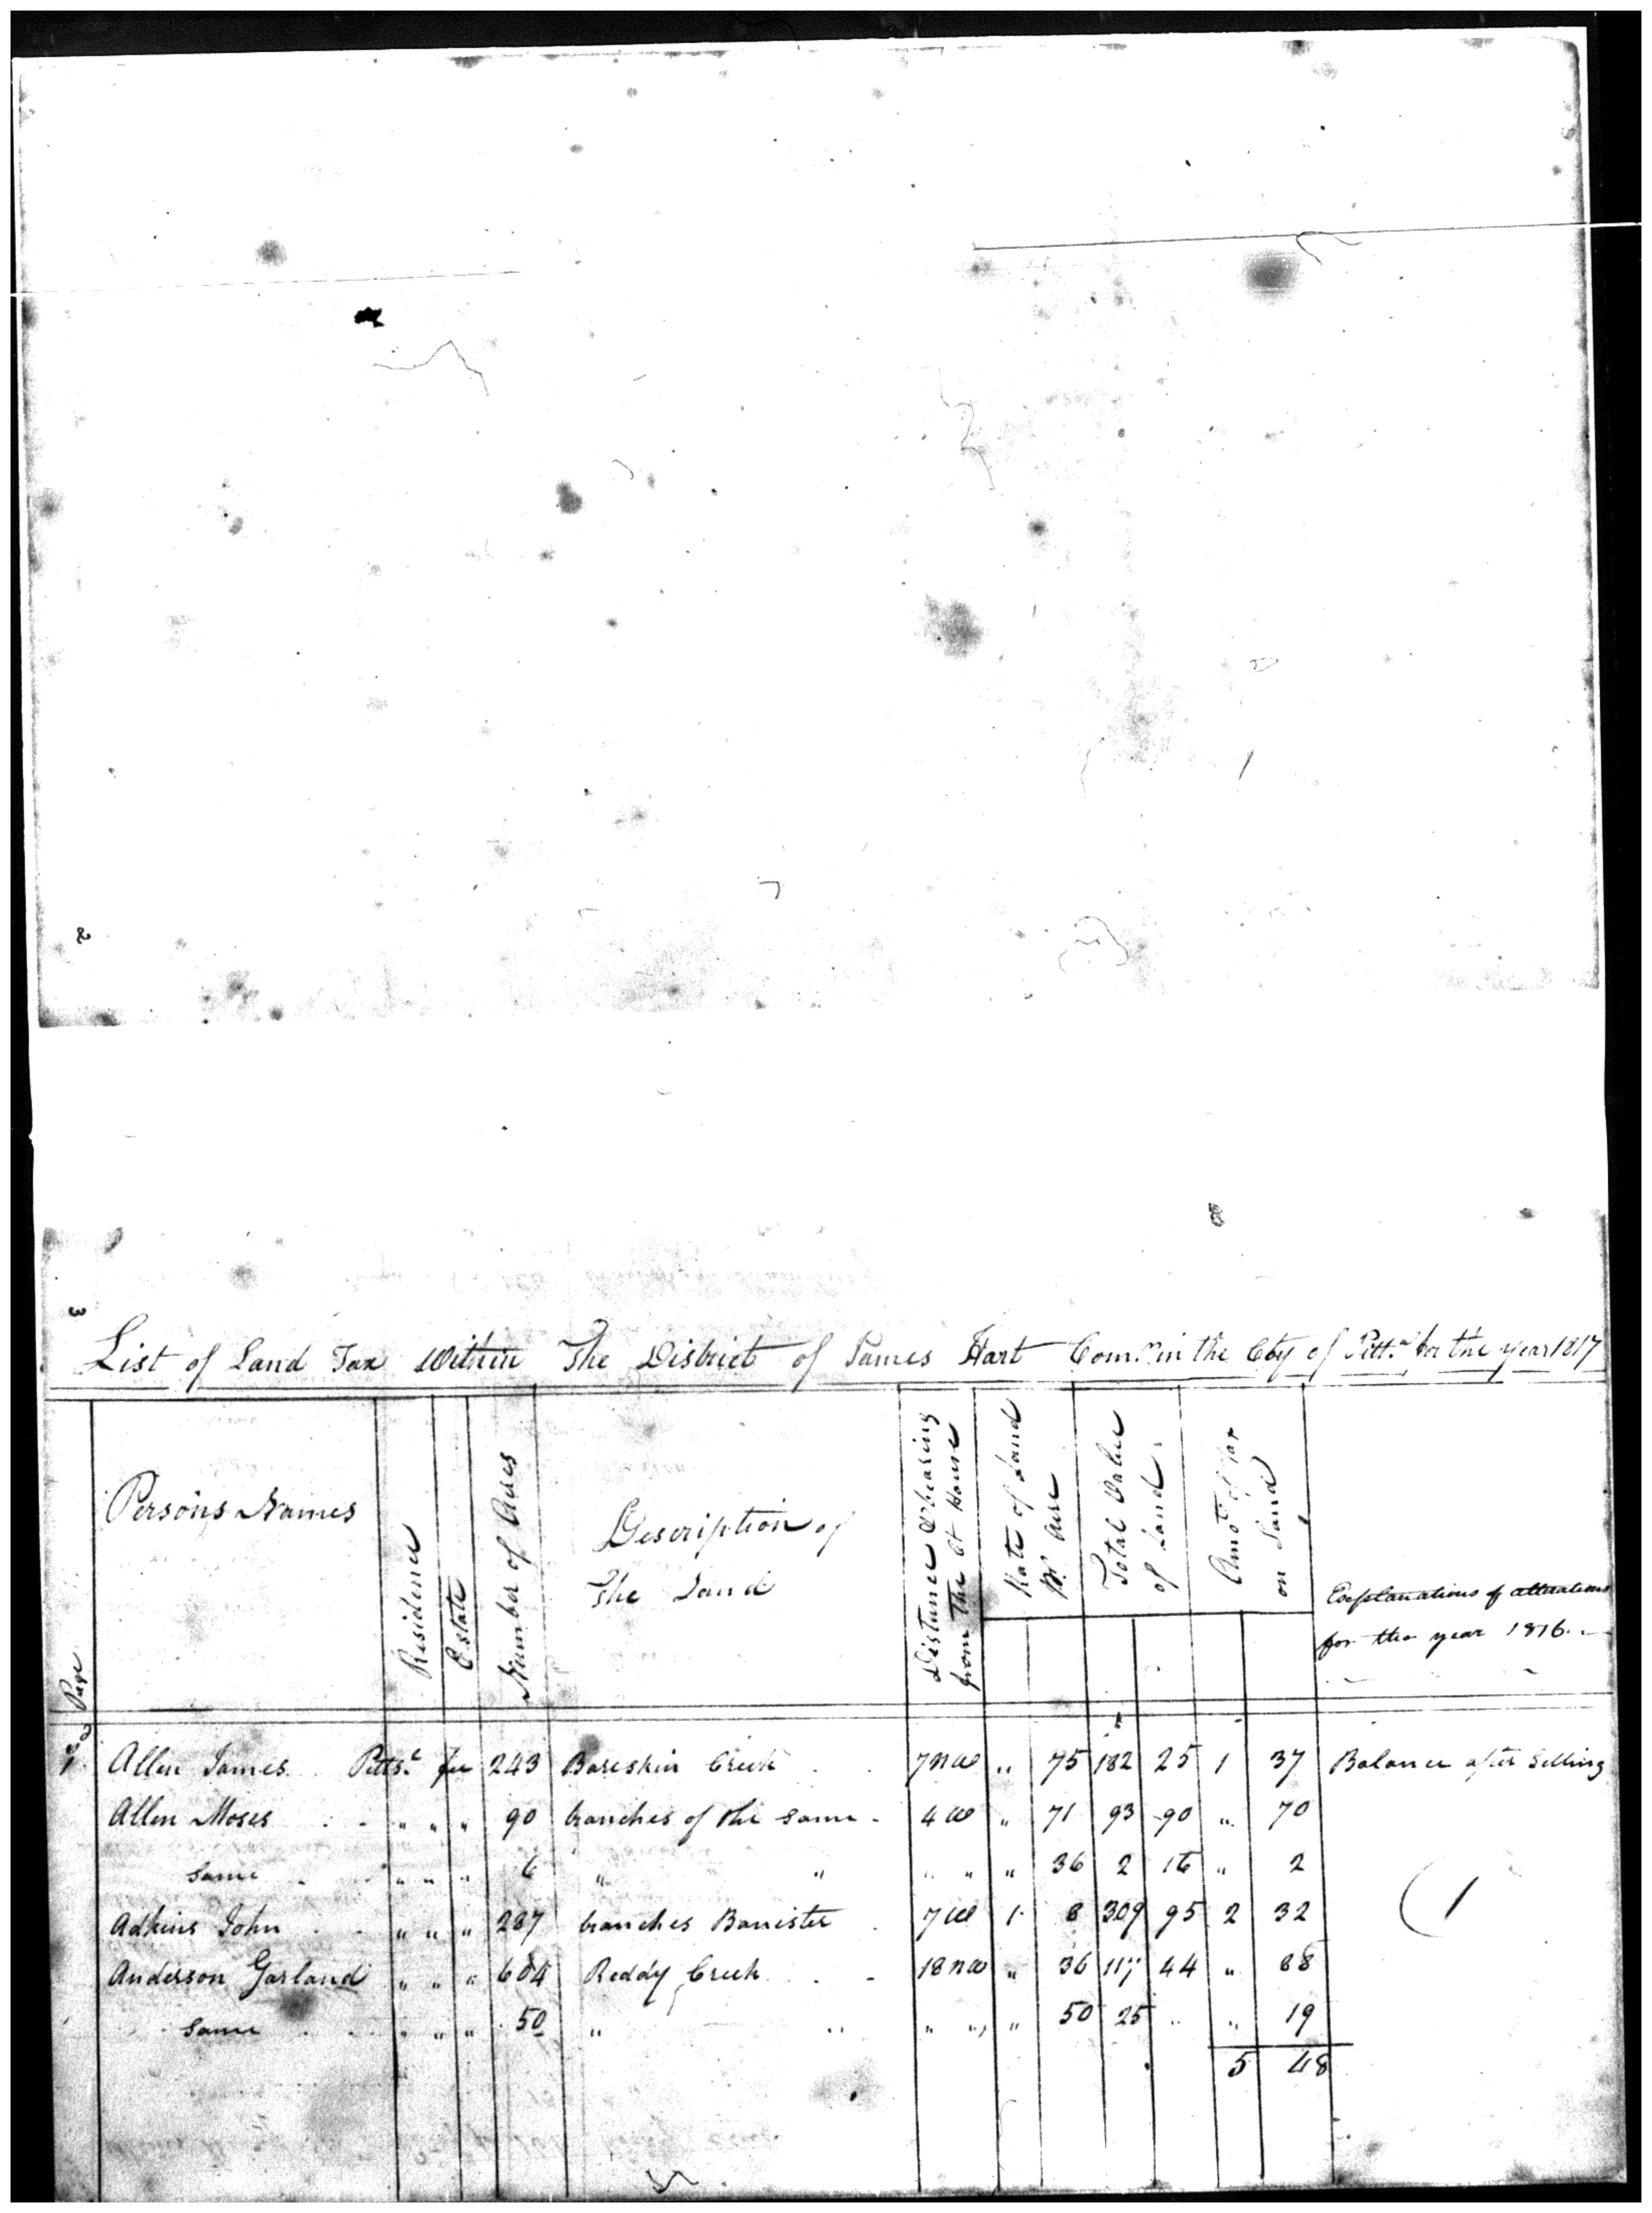 2
3
List of Land Tax within The District of James Hart Comr in the Cty of Pitta for the year 1817
Page
Persons Names
Residence
Estate
Number of Acres
Description of
The Land
Distance & bearing
from The Ct House
Rate of Land
Pr Acre
Total Value
of Land
Amot of tax
on Land
Explanations of alterations
for the year 1816
Allen James Pitts. fee 243 Bareskin Creek 7 NW " 75 182 25 1 37 Balance after Selling
Allen Moses " " " 90 branches of the same 4 W " 71 93 90 " 70
same " " " 6 " " " " " 36 2 16 " 2
Adkins John " " " 287 branches Banister 7 W 1 8 309 95 2 32
Anderson Garland " " " 604 Reddy Creek 18 NW " 36 117 44 " 88
same " " " 50 " " " " " 50 25 " " 19
5 48